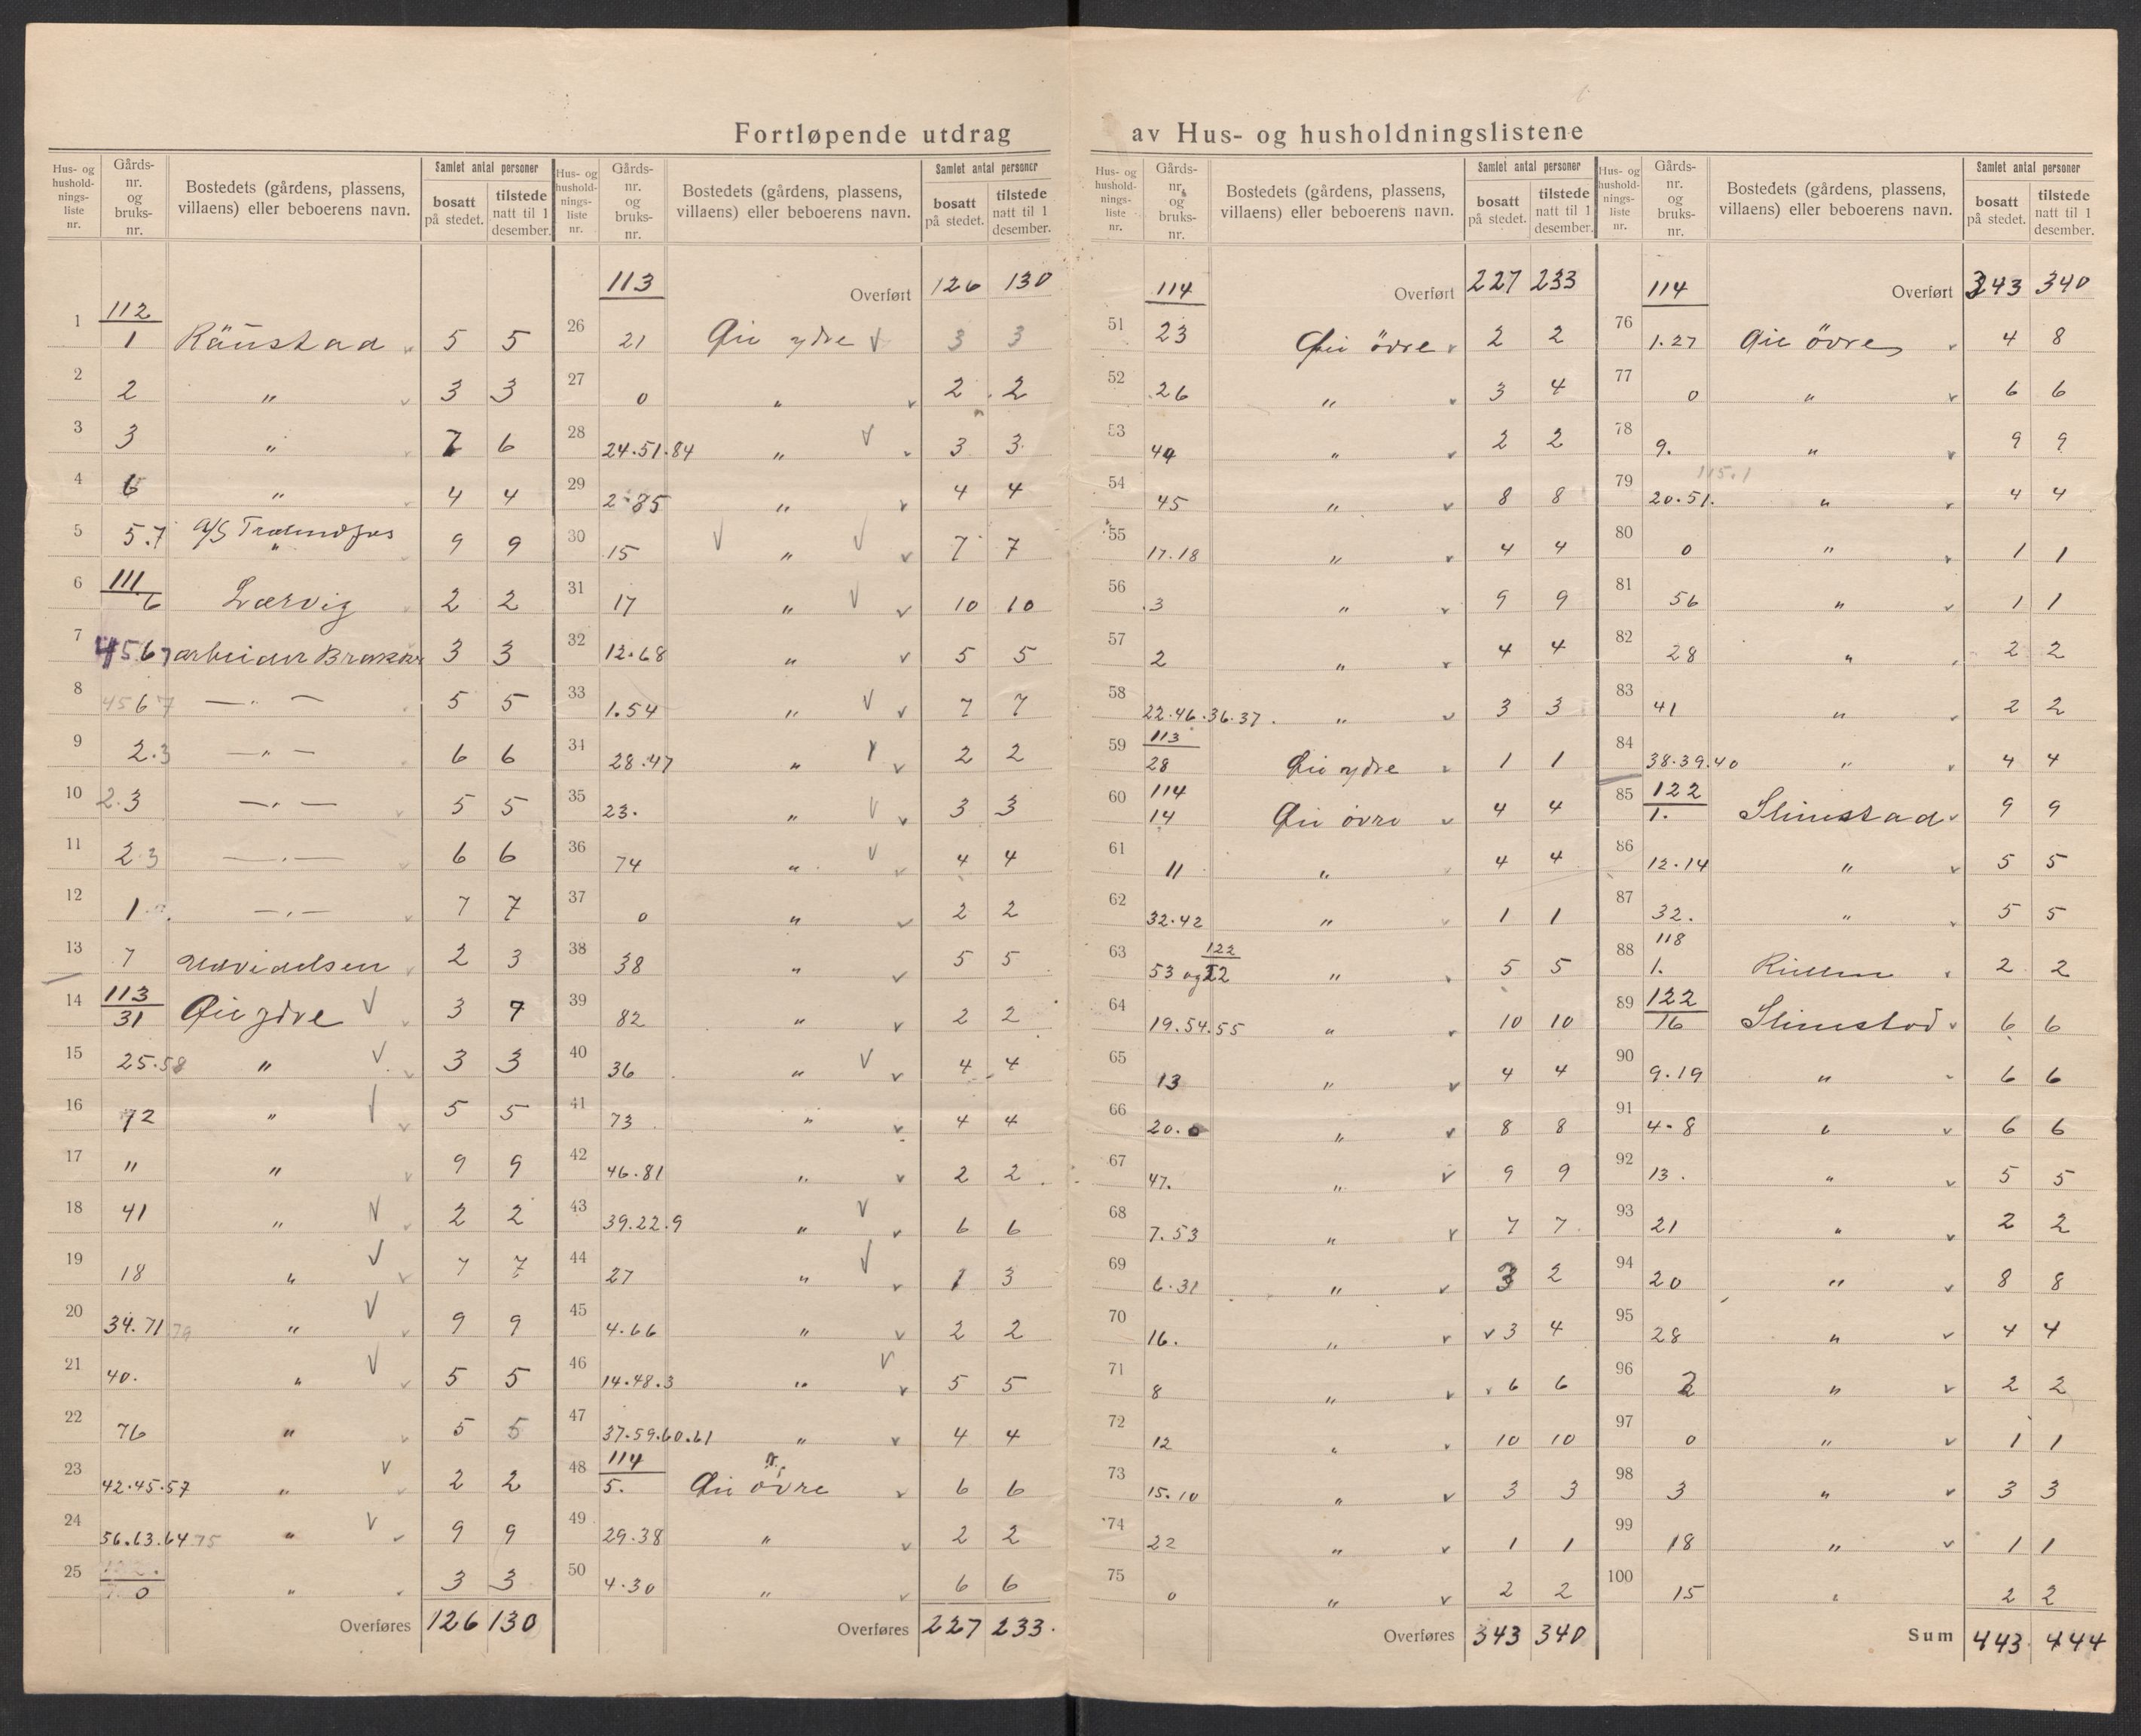 Fortløpende utdrag av Hus- og husholdningslistene
Hus- og husholdnings- liste nr. | Gårds- nr. og bruks- nr. | Bostedets (gårdens, plassens, villaens) eller beboerens navn. | Samlet antal personer | bosatt på stedet. | tilstede natt til 1 desember.
112
1 1 Ränstad 5 5
2 2 " 3 3
3 3 " 7 6
4 6 " 4 4
5 5.7 A/S " 9 9
6 111/6 Lærvig 2 2
7 4567 arbeider 3 3
8 4567 —"— 5 5
9 2.3 —"— 6 6
10 2.3 —"— 5 5
11 2.3 —"— 6 6
12 1 —"— 7 7
13 7 2 3
14 113/31 Øie ydre 3 7
15 25.58 " 3 3
16 72 " 5 5
17 " " 9 9
18 41 " 2 2
19 18 " 7 7
20 34.71 79 " 9 9
21 40. " 5 5
22 76 " 5 5
23 42.45.57 " 2 2
24 56.63.64.75 " 9 9
25 0 " 3 3
Overføres 126 130
Hus- og husholdnings- liste nr. | Gårds- nr. og bruks- nr. | Bostedets (gårdens, plassens, villaens) eller beboerens navn. | Samlet antal personer | bosatt på stedet. | tilstede natt til 1 desember.
113 Overført 126 130
26 21 Øie ydre 3 3
27 0 " 2 2
28 24.51.84 " 3 3
29 2.85 " 4 4
30 15 " 7 7
31 17 " 10 10
32 12.68 " 5 5
33 1.54 " 7 7
34 28.47 " 2 2
35 23. " 3 3
36 74 " 4 4
37 0 " 2 2
38 38 " 5 5
39 82 " 2 2
40 36 " 4 4
41 73 " 4 4
42 46.81 " 2 2
43 39.22.9 " 6 6
44 27 " 1 3
45 4.66 " 2 2
46 14.48.3 " 5 5
47 37.59.60.61 " 4 4
48 114/5. Øie övre 6 6
49 29.38 " 2 2
50 4.30 " 6 6
Overføres 227 233.
Hus- og husholdnings- liste nr. | Gårds- nr. og bruks- nr. | Bostedets (gårdens, plassens, villaens) eller beboerens navn. | Samlet antal personer | bosatt på stedet. | tilstede natt til 1 desember.
114 Overført 227 233
51 23 Øie övre 2 2
52 26 " 3 4
53 44 " 2 2
54 45 " 8 8
55 17.18 " 4 4
56 3 " 9 9
57 2 " 4 4
58 22.46.36.37. " 3 3
59 113/28 Øie ydre 1 1
60 114/14 Øie övre 4 4
61 11 " 4 4
62 32.42 " 1 1
63 53 og 122/22 " 5 5
64 19.54.55 " 10 10
65 13 " 4 4
66 20.0 " 8 8
67 47. " 9 9
68 7.53 " 7 7
69 6.31 " 3 2
70 16. " 3 4
71 8 " 6 6
72 12 " 10 10
73 15.10 " 3 3
74 22 " 1 1
75 0 " 2 2
Overføres 343 340
Hus- og husholdnings- liste nr. | Gårds- nr. og bruks- nr. | Bostedets (gårdens, plassens, villaens) eller beboerens navn. | Samlet antal personer | bosatt på stedet. | tilstede natt til 1 desember.
114 Overført 343 340
76 1.27 Øie övre 4 8
77 0 " 6 6
78 9. " 9 9
115.1
79 20.51. " 4 4
80 0 " 1 1
81 56 " 1 1
82 28 " 2 2
83 41 " 2 2
84 38.39.40 " 4 4
85 122/1. Slimestad 9 9
86 12.14 " 5 5
87 32. " 5 5
88 118/1. 2 2
89 122/16 Slimestad 6 6
90 9.19 " 6 6
91 4-8 " 6 6
92 13. " 5 5
93 21 " 2 2
94 20 " 8 8
95 28 " 4 4
96 2 " 2 2
97 0 " 1 1
98 3 " 3 3
99 18 " 1 1
100 15 " 2 2
Sum 443 444